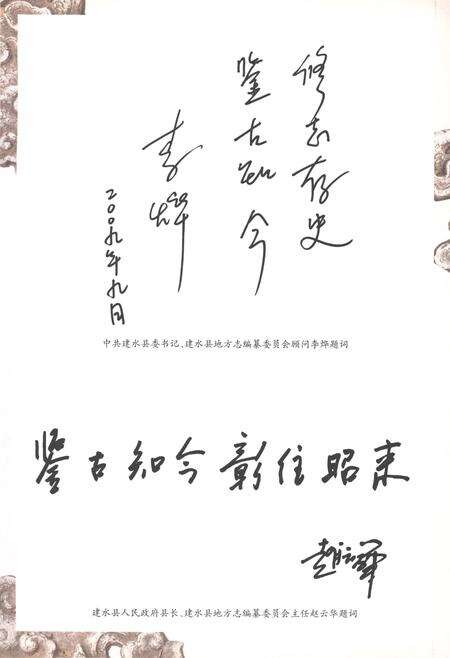 修志存史
鉴古知今
李烨
二〇〇九年九月
中共建水县委书记、建水县地方志编纂委员会顾问李烨题词
鉴古知今彰往昭来
赵云华
建水县人民政府县长、建水县地方志编纂委员会主任赵云华题词